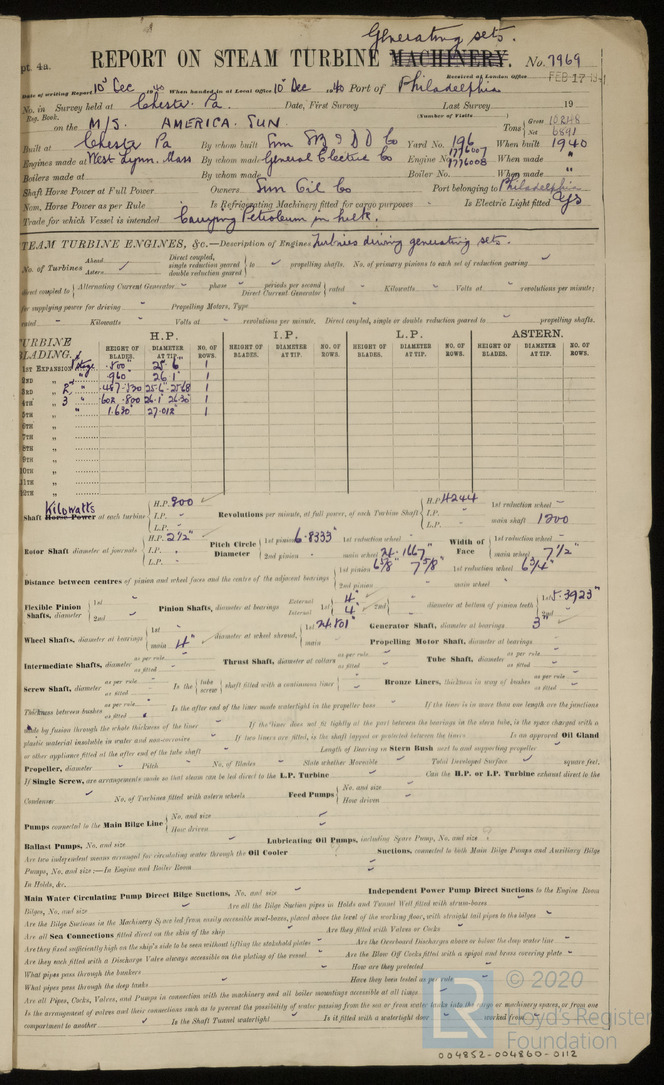 Generating sets.
pt. 4a.
REPORT ON STEAM TURBINE MACHINERY. No. 7969
Received at London Office FEB 17 1941
Date of writing Report 10th Dec 1940 When handed in at Local Office 10th Dec 1940 Port of Philadelphia
No. in Survey held at Chester. Pa. Date, First Survey Last Survey 19
Reg. Book. (Number of Visits )
on the M/S. AMERICA. SUN. Tons Gross Net 6891
Built at Chester Pa By whom built Sun SB & DD Co Yard No. 196 When built 1940
Engines made at West Lynn. Mass By whom made General Electric Co Engine No. 1776007 1776008 When made "
Boilers made at By whom made Boiler No. When made "
Shaft Horse Power at Full Power Owners Sun Oil Co Port belonging to Philadelphia
Nom. Horse Power as per Rule Is Refrigerating Machinery fitted for cargo purposes Is Electric Light fitted Yes
Trade for which Vessel is intended Carrying Petroleum in bulk.
TEAM TURBINE ENGINES, &c.—Description of Engines Turbines driving generating sets.
No. of Turbines Ahead Astern Direct coupled, single reduction geared double reduction geared to propelling shafts. No. of primary pinions to each set of reduction gearing
direct coupled to Alternating Current Generator phase periods per second Direct Current Generator rated Kilowatts Volts at revolutions per minute;
for supplying power for driving Propelling Motors, Type
rated Kilowatts Volts at revolutions per minute. Direct coupled, single or double reduction geared to propelling shafts.
TURBINE BLADING. H.P. I.P. L.P. ASTERN.
HEIGHT OF BLADES. DIAMETER AT TIP. NO. OF ROWS. HEIGHT OF BLADES. DIAMETER AT TIP. NO. OF ROWS. HEIGHT OF BLADES. DIAMETER AT TIP. NO. OF ROWS. HEIGHT OF BLADES. DIAMETER AT TIP. NO. OF ROWS.
1ST EXPANSION 1 stage .800" 25.6 1
2ND " " .960 26.1 1
3RD " 2 " .467-.530 25.6" 25.68 1
4TH " 3 " .602 .800 26.1 26.30 1
5TH " " 1.630" 27.012" 1
6TH "
7TH "
8TH "
9TH "
10TH "
11TH "
12TH "
Shaft Horse Power Kilowatts at each turbine H.P. 200 I.P. L.P. Revolutions per minute, at full power, of each Turbine Shaft H.P. 4244 I.P. L.P. 1st reduction wheel main shaft 1200
Rotor Shaft diameter at journals H.P. 2 1/2" I.P. L.P. Pitch Circle Diameter 1st pinion 6.8333" 2nd pinion 1st reduction wheel main wheel 24.1667" Width of Face 1st reduction wheel main wheel 7 1/2"
Distance between centres of pinion and wheel faces and the centre of the adjacent bearings 1st pinion 6 5/8" 7 5/8" 2nd pinion 1st reduction wheel 6 3/4" main wheel
Flexible Pinion Shafts, diameter 1st 2nd Pinion Shafts, diameter at bearings External 4" Internal 1st 4" 2nd diameter at bottom of pinion teeth 1st 5.3923" 2nd
Wheel Shafts, diameter at bearings 1st main 4" diameter at wheel shroud, 1st 24.101" main Generator Shaft, diameter at bearings 3" Propelling Motor Shaft, diameter at bearings
Intermediate Shafts, diameter as per rule as fitted Thrust Shaft, diameter at collars as per rule as fitted Tube Shaft, diameter as per rule as fitted
Screw Shaft, diameter as per rule as fitted Is the tube screw shaft fitted with a continuous liner Bronze Liners, thickness in way of bushes as per rule as fitted
Thickness between bushes as per rule as fitted Is the after end of the liner made watertight in the propeller boss If the liner is in more than one length are the junctions
made by fusion through the whole thickness of the liner If the liner does not fit tightly at the part between the bearings in the stern tube, is the space charged with a
plastic material insoluble in water and non-corrosive If two liners are fitted, is the shaft lapped or protected between the liners Is an approved Oil Gland
or other appliance fitted at the after end of the tube shaft Length of Bearing in Stern Bush next to and supporting propeller
Propeller, diameter Pitch No. of Blades State whether Moveable Total Developed Surface square feet.
If Single Screw, are arrangements made so that steam can be led direct to the L.P. Turbine Can the H.P. or I.P. Turbine exhaust direct to the
Condenser No. of Turbines fitted with astern wheels Feed Pumps No. and size How driven
Pumps connected to the Main Bilge Line No. and size How driven
Ballast Pumps, No. and size Lubricating Oil Pumps, including Spare Pump, No. and size
Are two independent means arranged for circulating water through the Oil Cooler Suctions, connected to both Main Bilge Pumps and Auxiliary Bilge
Pumps, No. and size:—In Engine and Boiler Room
In Holds, &c.
Main Water Circulating Pump Direct Bilge Suctions, No. and size Independent Power Pump Direct Suctions to the Engine Room
Bilges, No. and size Are all the Bilge Suction pipes in Holds and Tunnel Well fitted with strum-boxes
Are the Bilge Suctions in the Machinery Space led from easily accessible mud-boxes, placed above the level of the working floor, with straight tail pipes to the bilges
Are all Sea Connections fitted direct on the skin of the ship Are they fitted with Valves or Cocks
Are they fixed sufficiently high on the ship's side to be seen without lifting the stokehold plates Are the Overboard Discharges above or below the deep water line
Are they each fitted with a Discharge Valve always accessible on the plating of the vessel Are the Blow Off Cocks fitted with a spigot and brass covering plate
What pipes pass through the bunkers How are they protected
What pipes pass through the deep tanks Have they been tested as per rule
Are all Pipes, Cocks, Valves, and Pumps in connection with the machinery and all boiler mountings accessible at all times
Is the arrangement of valves and their connections such as to prevent the possibility of water passing from the sea or from water tanks into the cargo or machinery spaces, or from one
compartment to another Is the Shaft Tunnel watertight Is it fitted with a watertight door worked from
LR © 2020
Lloyd's Register
Foundation
004852-004860-0112